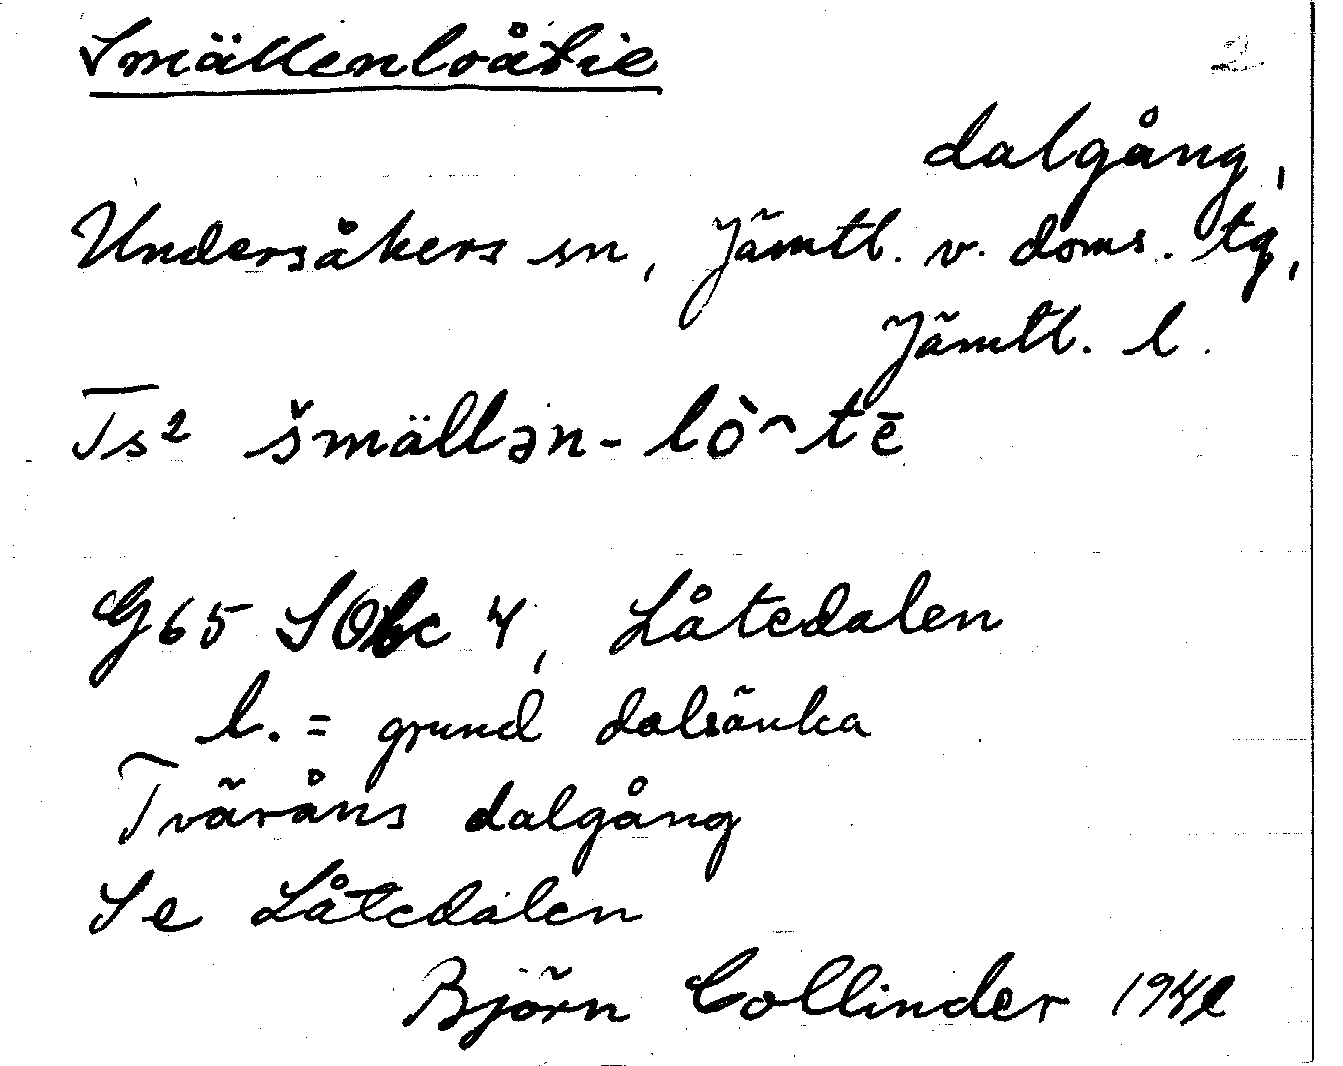 Smällenloåtie
2
dalgång,
Undersåkers sn, Jämtl. v. doms. tg,
Jämtl. l.
Ts² šmällən-lò͡tē
G65 SObc 4, Låtedalen
l. = grund dalsänka
Tväråns dalgång
Se Låtedalen
Björn Collinder